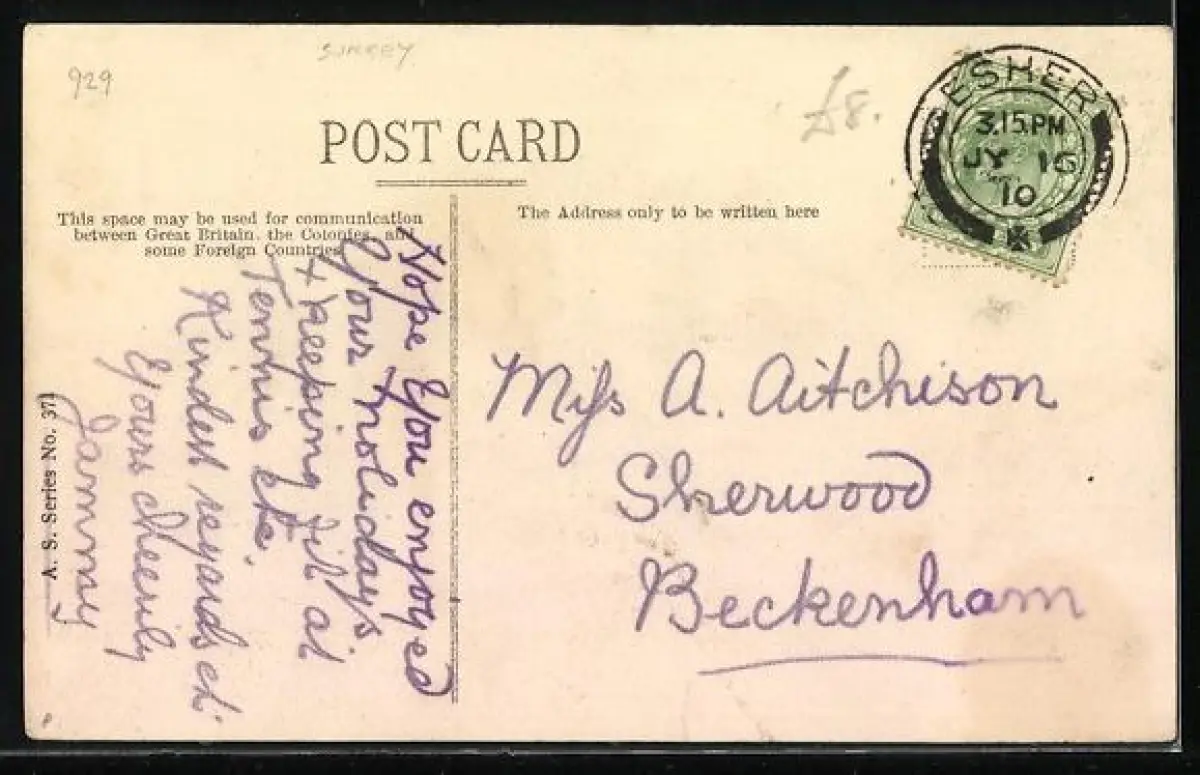 929
SURREY
£8.
POST CARD
This space may be used for communication
between Great Britain, the Colonies, and
some Foreign Countries
The Address only to be written here
ESHER
3.15.PM
JY 16
10
Hope you enjoyed
your holidays
+ keeping fit at
Tennis etc.
Kindest regards etc.
Yours cheerily
Jammy
Miss A. Aitchison
Sherwood
Beckenham
A. S. Series No. 371